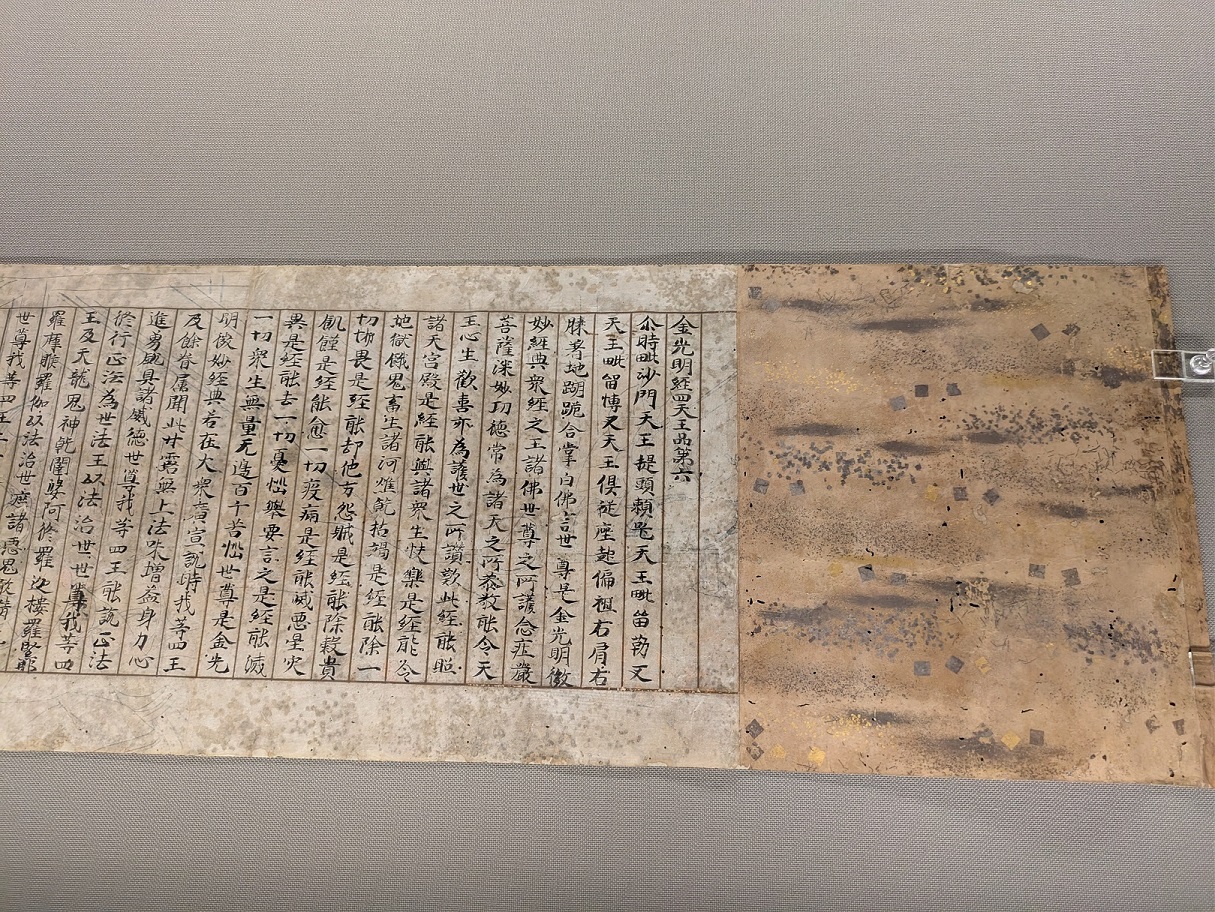 金光明經四天王品第六
尒時毗沙門天王提頭頼吒天王毗留勒叉
天王毗留博叉天王俱從座起偏袒右肩右
膝著地踟跪合掌白佛言世尊是金光明微
妙經典衆經之王諸佛世尊之所護念症嚴
菩薩深妙功徳常為諸天之所恭敬能令天
王心生歡喜亦為護世之所讚歎此經能照
諸天宮殿是經能與諸衆生快樂是經能令
地獄餓鬼畜生諸河燋乾枯竭是經能除一
切怖畏是經能却他方怨賊是經能除穀貴
飢饉是經能愈一切疫病是經能滅惡星灾
異是經能去一切憂惱舉要言之是經能滅
一切衆生無量无邊百千苦惱世尊是金光
明微妙經典若在大衆廣宣說時我等四王
及餘眷屬聞此甘露無上法味增益身力心
進勇威具諸威徳世尊我等四王能說正法
修行正法為世法王以法治世世尊我等四
王及天龍鬼神乾闥婆阿修羅迦樓羅緊那
羅摩睺羅伽以法治世遮諸惡鬼
世尊我等四王